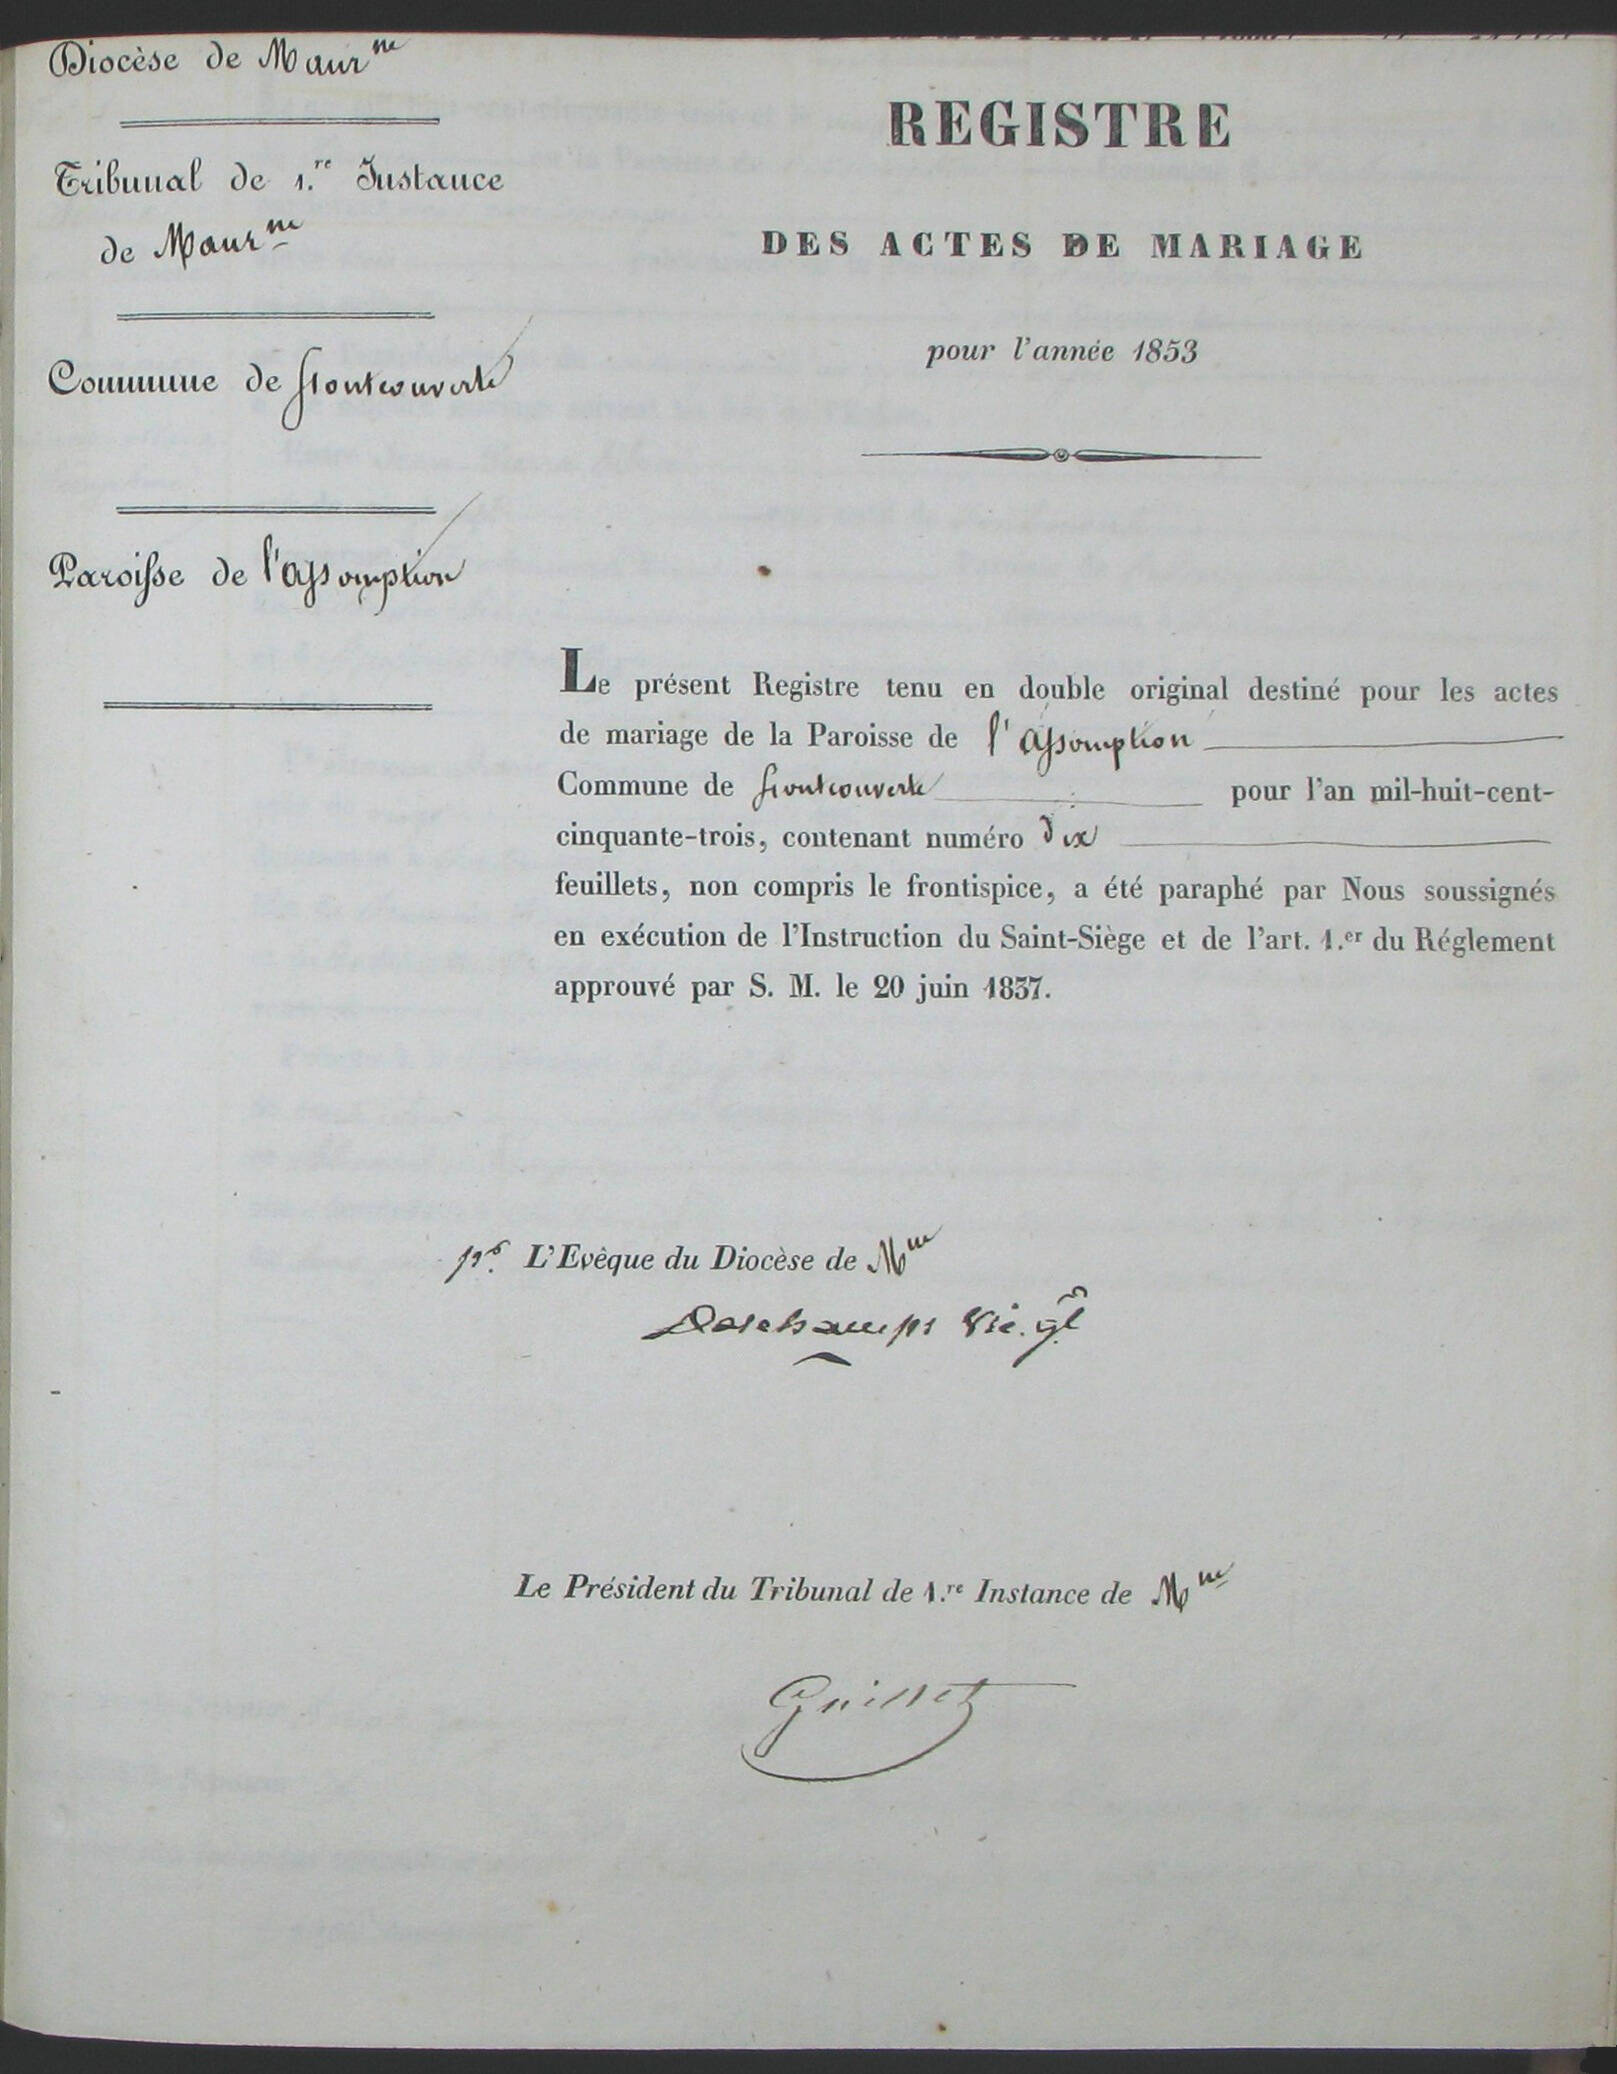 Diocèse de Maur^ne
Tribunal de 1.re Instance
de Maur^ne
Commune de fontcouverte
Paroisse de l'assomption
REGISTRE
DES ACTES DE MARIAGE
pour l'année 1853
Le présent Registre tenu en double original destiné pour les actes
de mariage de la Paroisse de l'assomption
Commune de fontcouverte pour l'an mil-huit-cent-
cinquante-trois, contenant numéro dix
feuillets, non compris le frontispice, a été paraphé par Nous soussignés
en exécution de l'Instruction du Saint-Siège et de l'art. 1.er du Réglement
approuvé par S. M. le 20 juin 1837.
pr. L'Evêque du Diocèse de M^ne
Deschamps Vic. gl
Le Président du Tribunal de 1.re Instance de M^ne